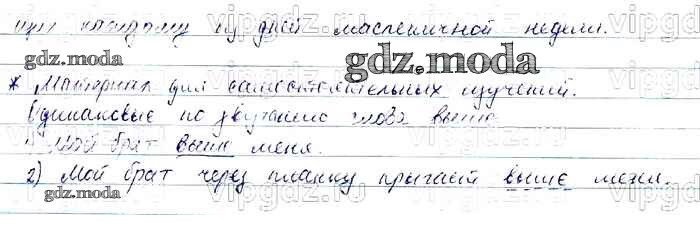 каждому из дней масленичной недели.
gdz.moda
gdz.moda
* Материал для самостоятельных изучений.
Одинаковые по звучанию слова выше
1) Мой брат выше меня.
gdz.moda
2) Мой брат через планку прыгает выше меня.
gdz.moda